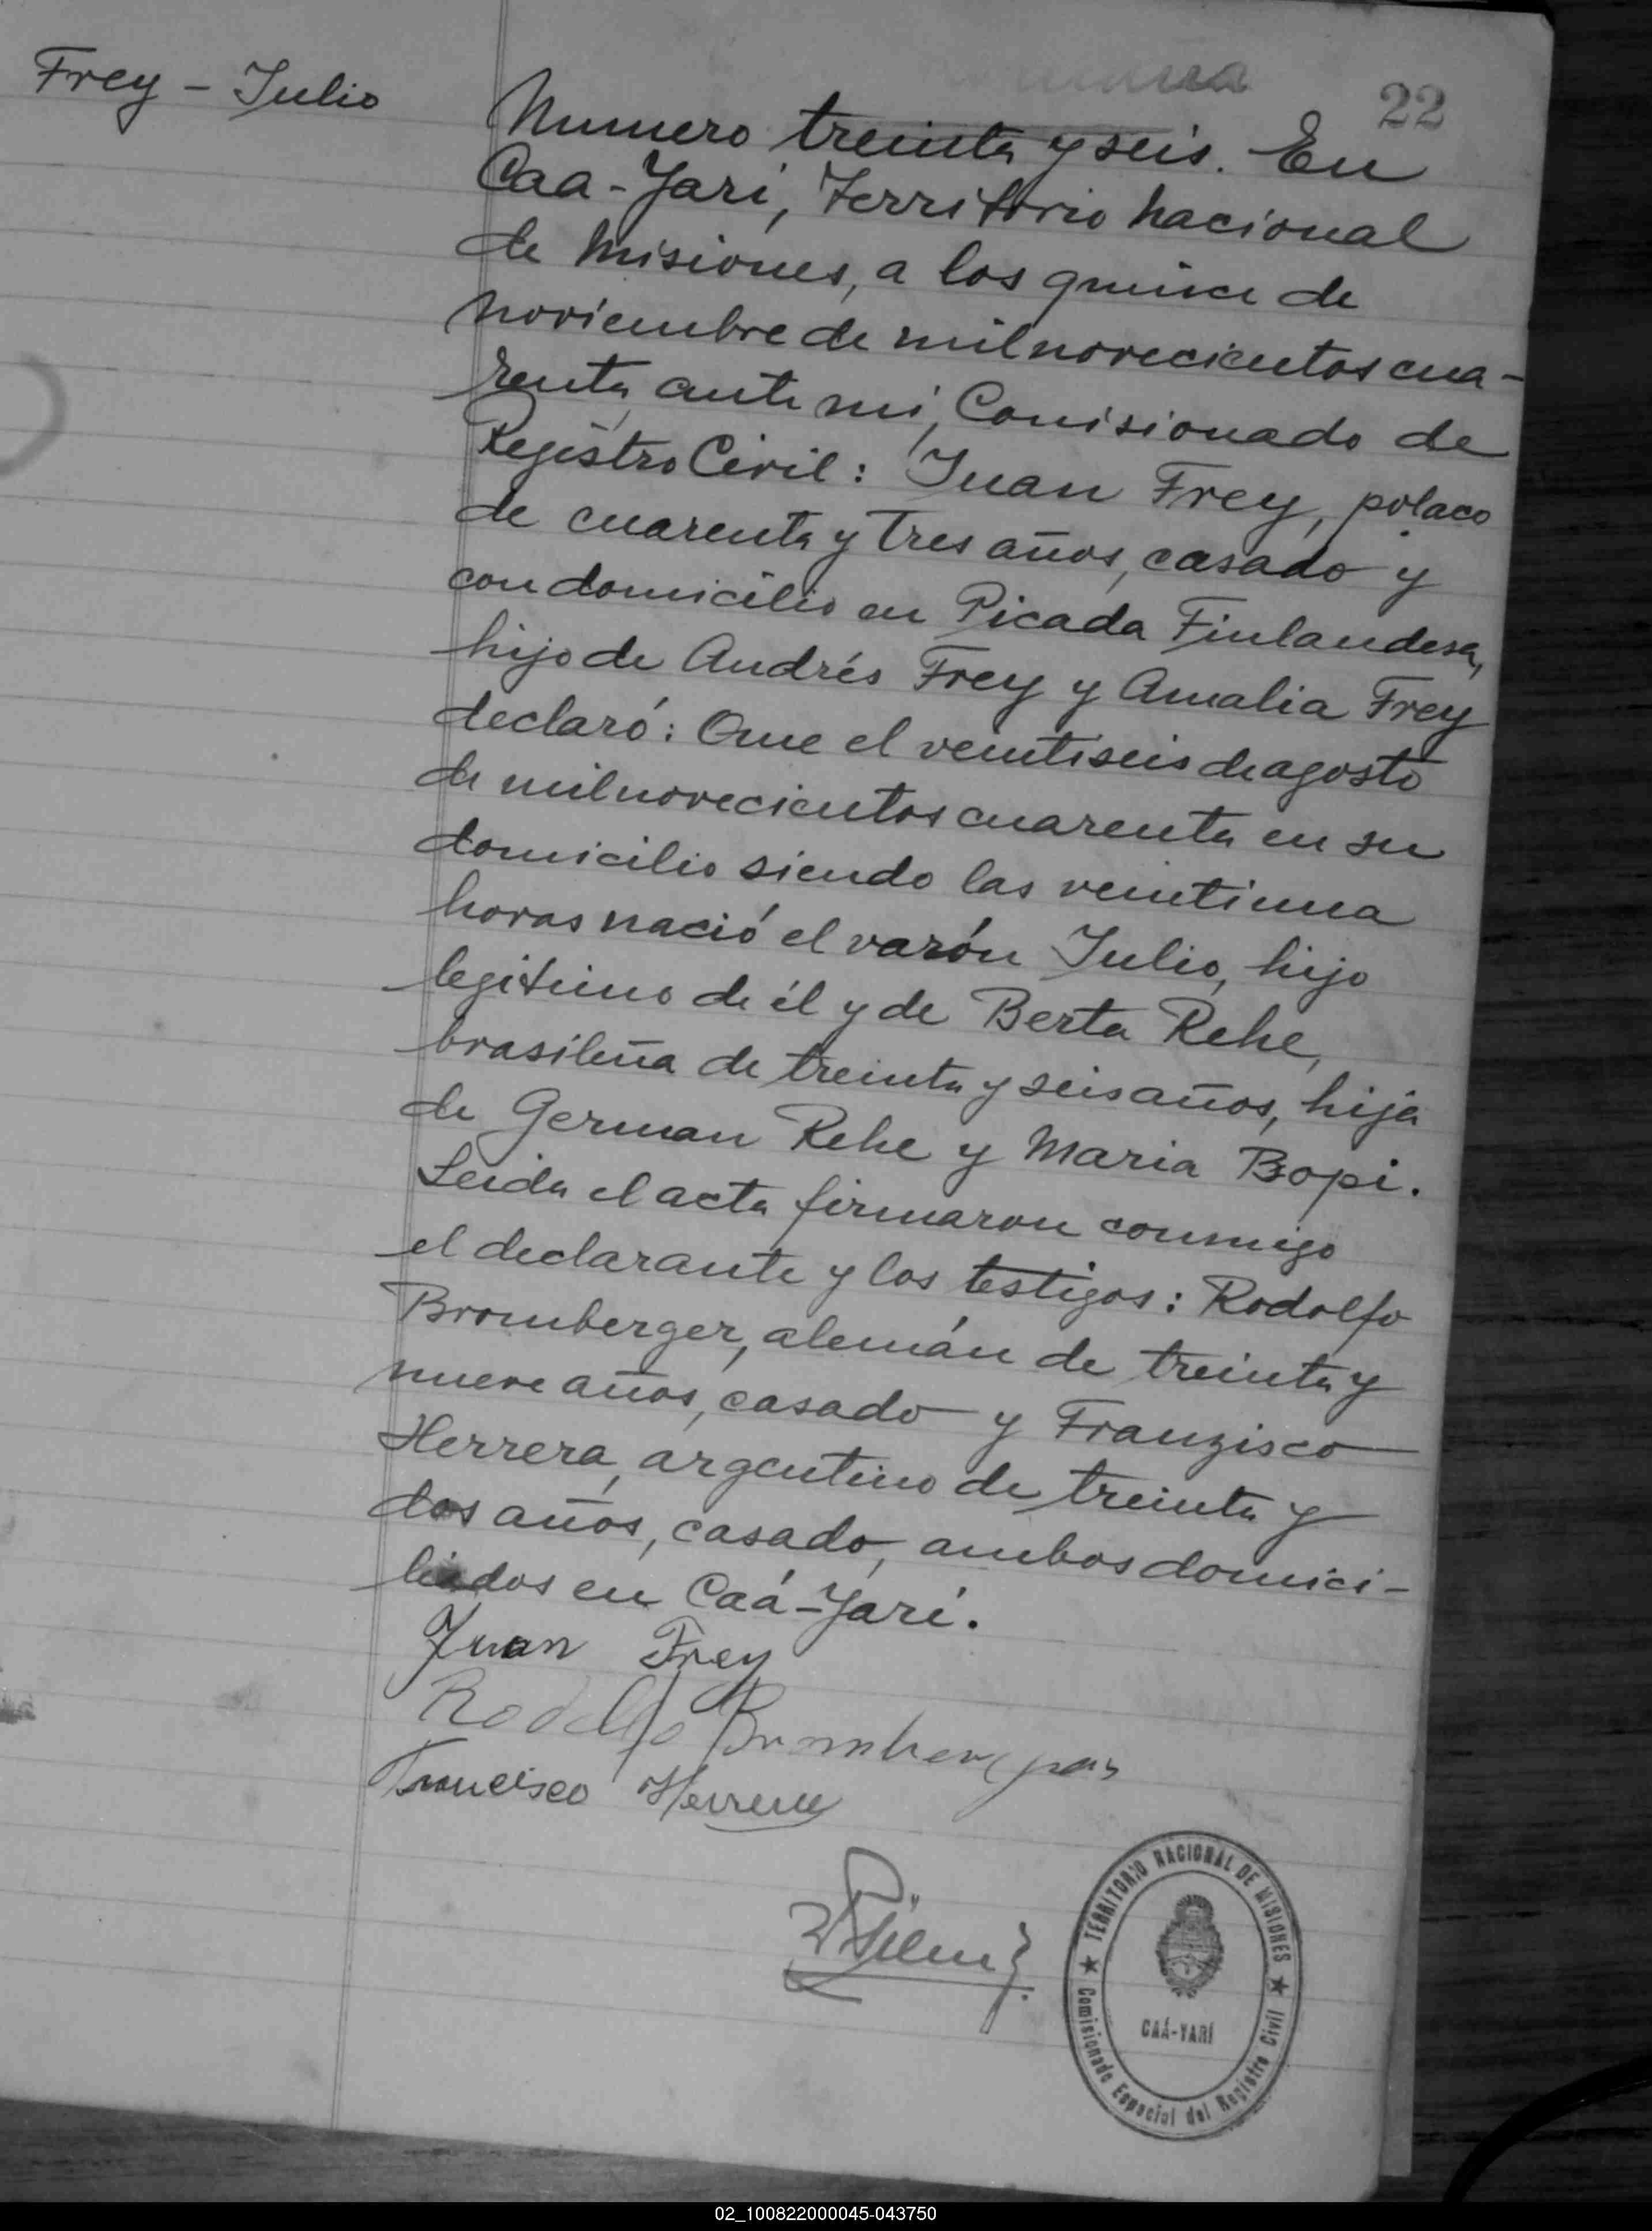 Frey - Julio
22
Numero treinta y seis. En
Caa-Yari, Territorio nacional
de Misiones, a los quince de
noviembre de milnovecientos cua-
renta ante mi, Comisionado de
Registro Civil: Juan Frey, polaco
de cuarenta y tres años, casado y
con domicilio en Picada Finlandesa,
hijo de Andrés Frey y Amalia Frey
declaró: Que el veintiseis de agosto
de milnovecientos cuarenta en su
domicilio siendo las veintiuna
horas nació el varón Julio, hijo
legitimo de él y de Berta Rehe,
brasileña de treinta y seis años, hija
de German Rehe y Maria Bopi.
Leida el acta firmaron conmigo
el declarante y los testigos: Rodolfo
Bromberger, alemán de treinta y
nueve años, casado y Franzisco
Herrera, argentino de treinta y
dos años, casado, ambos domici-
liados en Caá-Yari.
Juan Frey
Rodolfo Bromberger
Francisco Herrera
TERRITORIO NACIONAL DE MISIONES
CAÁ-YARÍ
Comisionado Especial del Registro Civil
02_100822000045-043750